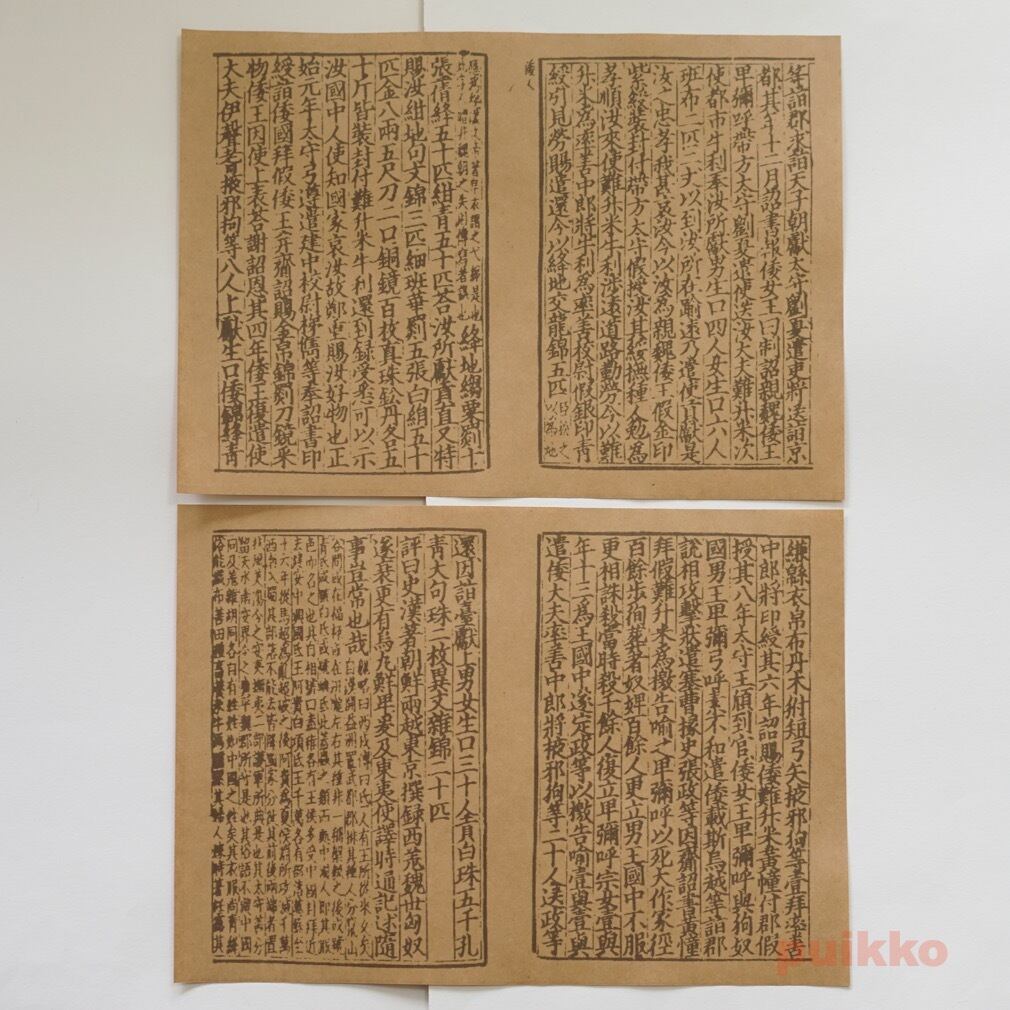 等詣郡求詣天子朝獻太守劉夏遣吏將送詣京
都其年十二月詔書報倭女王曰制詔親魏倭王
卑彌呼帶方太守劉夏遣使送汝大夫難升米次
使都市牛利奉汝所獻男生口四人女生口六人
班布二匹二丈以到汝所在踰遠乃遣使貢獻是
汝之忠孝我甚哀汝今以汝為親魏倭王假金印
紫綬裝封付帶方太守假授汝其綏撫種人勉為
孝順汝來使難升米牛利涉遠道路勤勞今以難
升米為率善中郎將牛利為率善校尉假銀印青
綬引見勞賜遣還今以絳地交龍錦五匹臣松之以為地
應為綈漢文帝著皁衣謂之弋綈是也此字不體非魏朝之失則傳寫者誤也絳地縐粟罽十
張蒨絳五十匹紺青五十匹荅汝所獻貢直又特
賜汝紺地句文錦三匹細班華罽五張白絹五十
匹金八兩五尺刀二口銅鏡百枚真珠鈆丹各五
十斤皆裝封付難升米牛利還到録受悉可以示
汝國中人使知國家哀汝故鄭重賜汝好物也正
始元年太守弓遵遣建中校尉梯儁等奉詔書印
綬詣倭國拜假倭王并齎詔賜金帛錦罽刀鏡采
物倭王因使上表荅謝詔恩其四年倭王復遣使
大夫伊聲耆掖邪狗等八人上獻生口倭錦絳青
縑緜衣帛布丹木附短弓矢掖邪狗等壹拜率善
中郎將印綬其六年詔賜倭難升米黃幢付郡假
授其八年太守王頎到官倭女王卑彌呼與狗奴
國男王卑彌弓呼素不和遣倭載斯烏越等詣郡
說相攻擊狀遣塞曹掾史張政等因齎詔書黃幢
拜假難升米為檄告喻之卑彌呼以死大作冢徑
百餘步狥葬者奴婢百餘人更立男王國中不服
更相誅殺當時殺千餘人復立卑彌呼宗女壹與
年十三為王國中遂定政等以檄告喻壹與壹與
遣倭大夫率善中郎將掖邪狗等二十人送政等
還因詣臺獻上男女生口三十人貢白珠五千孔
青大句珠二枚異文雜錦二十匹
評曰史漢著朝鮮兩越東京撰録西羌魏世匈奴
遂衰更有烏丸鮮卑爰及東夷使譯時通記述隨
事豈常也哉
puikko